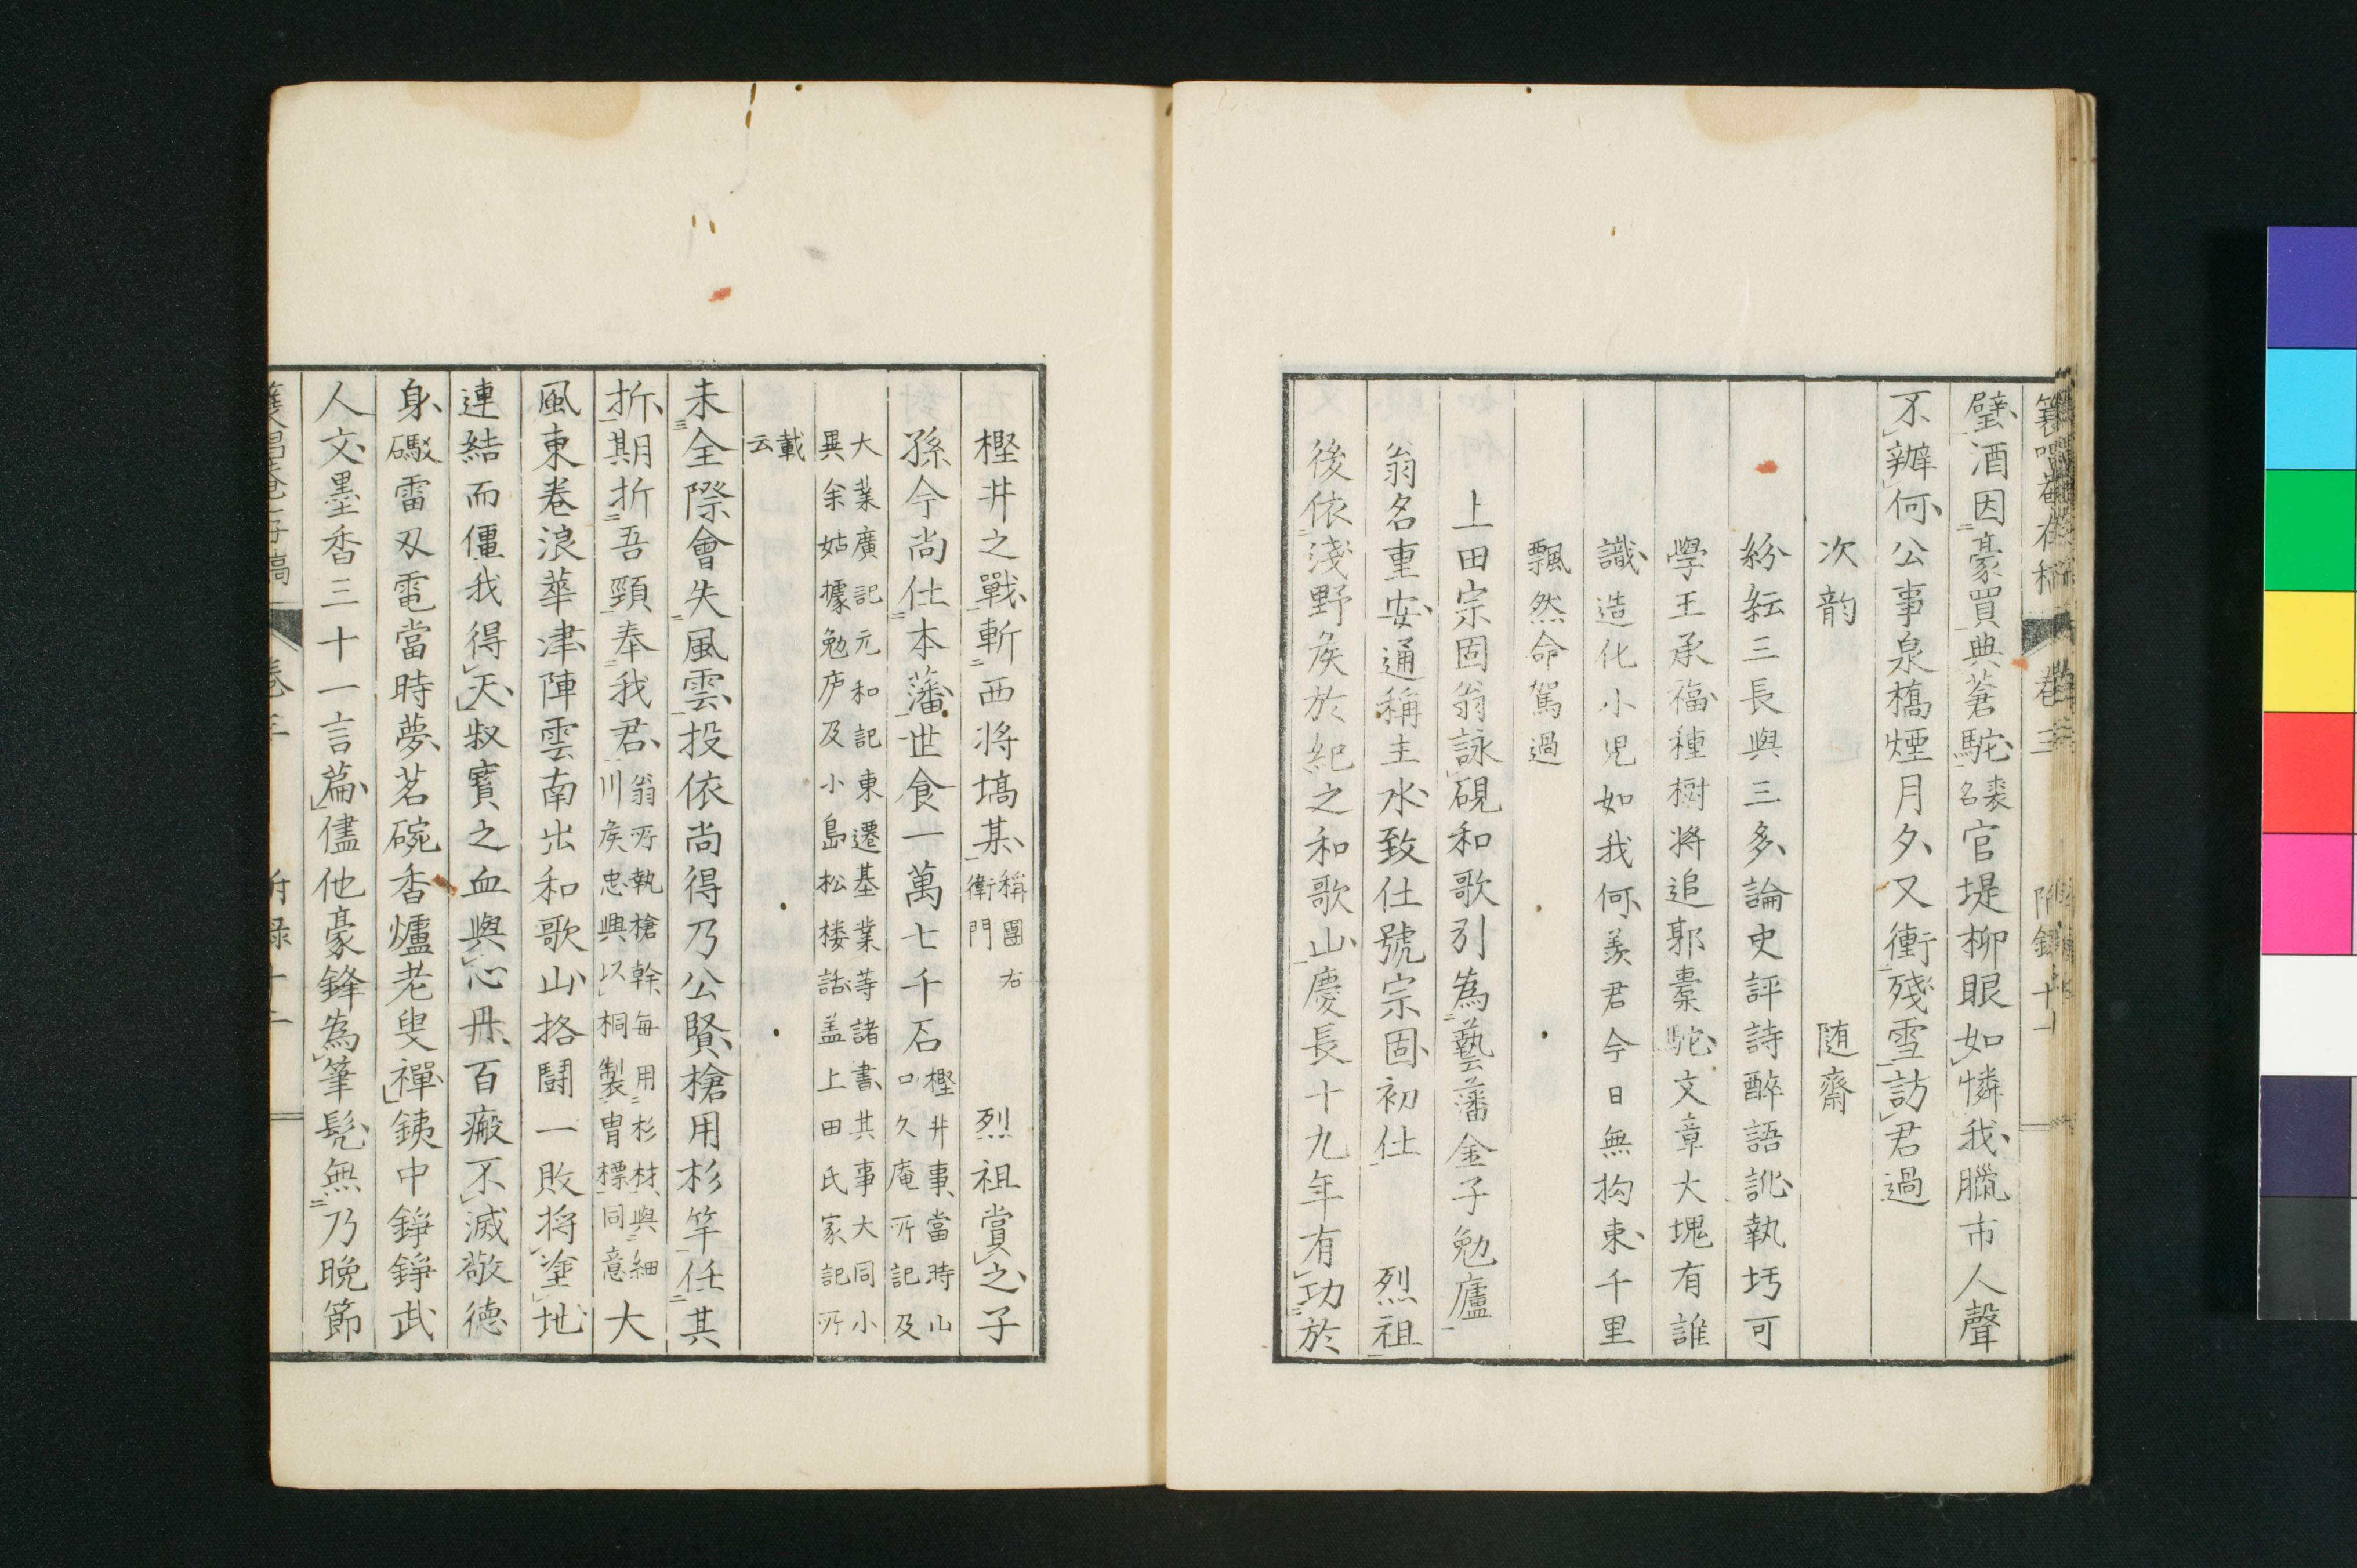 卷三
附錄十一
璧酒因豪買典蒼駝裘名官堤柳眼如憐我臘市人聲
不辦何公事泉橋煙月夕又衝殘雪訪君過
次韵 随齋
紛紜三長與三多論史評詩醉語訛執圬可
學王承福種樹将追郭橐駝文章大塊有誰
識造化小兒如我何羨君今日無拘束千里
飄然命駕過
上田宗固翁詠硯和歌引為藝藩金子勉廬
翁名重安通稱主水致仕號宗固初仕 烈祖
後依淺野矦於紀之和歌山慶長十九年有功於
樫井之戰斬西将塙某稱團右衛門 烈祖賞之子
孫今尚仕本藩世食一萬七千石樫井事當時山口久庵所記及
大業廣記元和記東遷基業等諸書其事大同小異余姑據勉庐及小島松楼話盖上田氏家記所
載云
未全際會失風雲投依尚得乃公賢槍用杉竿任其
折期折吾頸奉我君翁所執槍幹每用杉材與細川矦忠興以桐製冑標同意大
風東卷浪華津陣雲南出和歌山挌鬪一敗将塗地
連結而僵我得天叔寳之血與心丹百瘢不滅敬德
身礟雷刄電當時夢茗碗香爐老叟禪鐵中錚錚武
人文墨香三十一言篇儘他豪鋒為筆髡無乃晚節